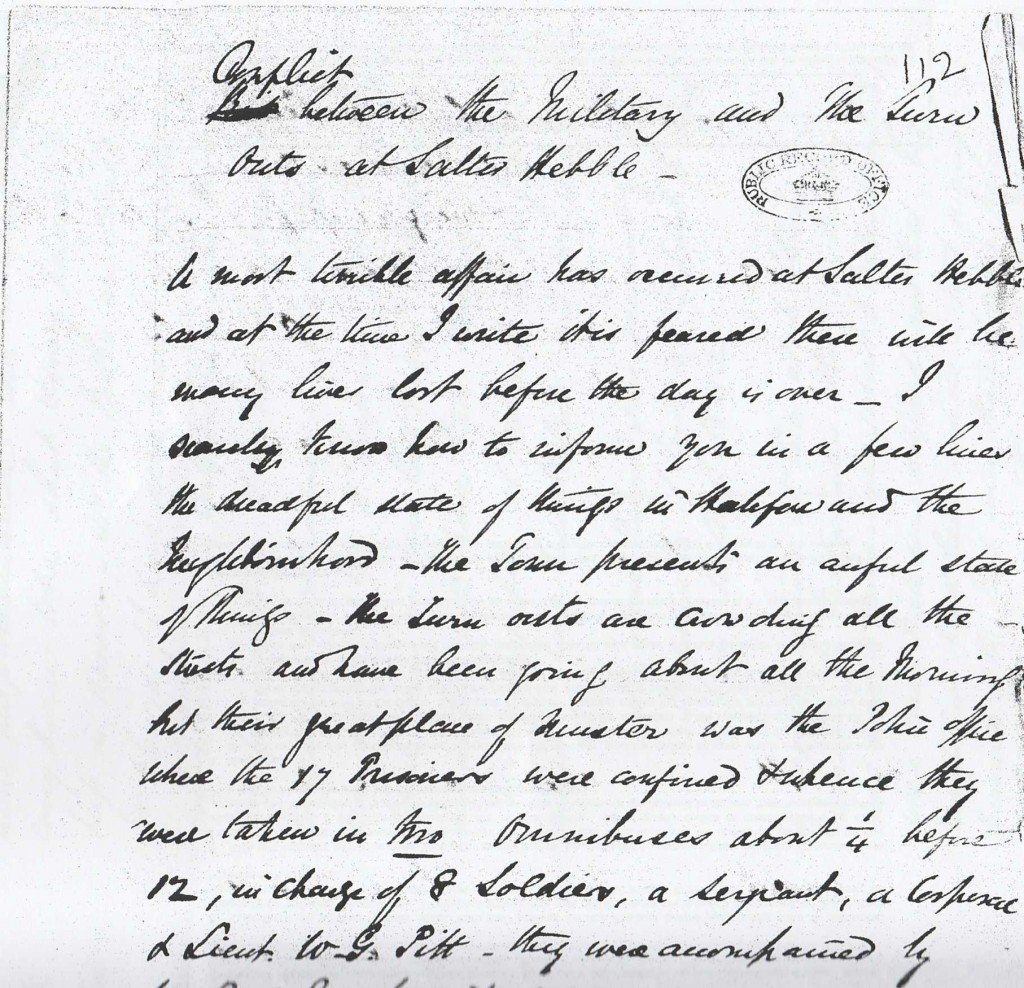 112
Conflict
between the Military and the Turn
Outs at Salter Hebble -
PUBLIC RECORD OFFICE
A most terrible affair has occurred at Salter Hebble
and at the time I write it is feared there will be
many lives lost before the day is over - I
scarcely know how to inform you in a few lines
the dreadful state of things in Halifax and the
Neighbourhood - the Town presents an awful state
of Things - the Turn outs are crowding all the
streets and have been going about all the Morning
but their great place of Muster was the Police office
where the 17 Prisoners were confined & whence they
were taken in two Omnibuses about 1/4 before
12, in charge of 8 Soldiers, a sergeant, a Corporal
& Lieut. W. G. Pitt - they were accompanied by